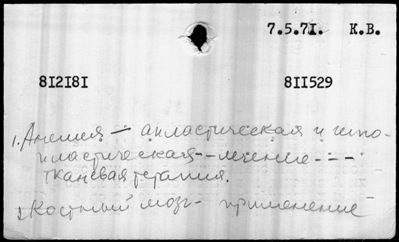 7.5.71. К.В.
812181 811529
1. Анемия — апластическая и гипо-
пластическая - лечение - - -
тканевая терапия.
2. Костный мозг - применение